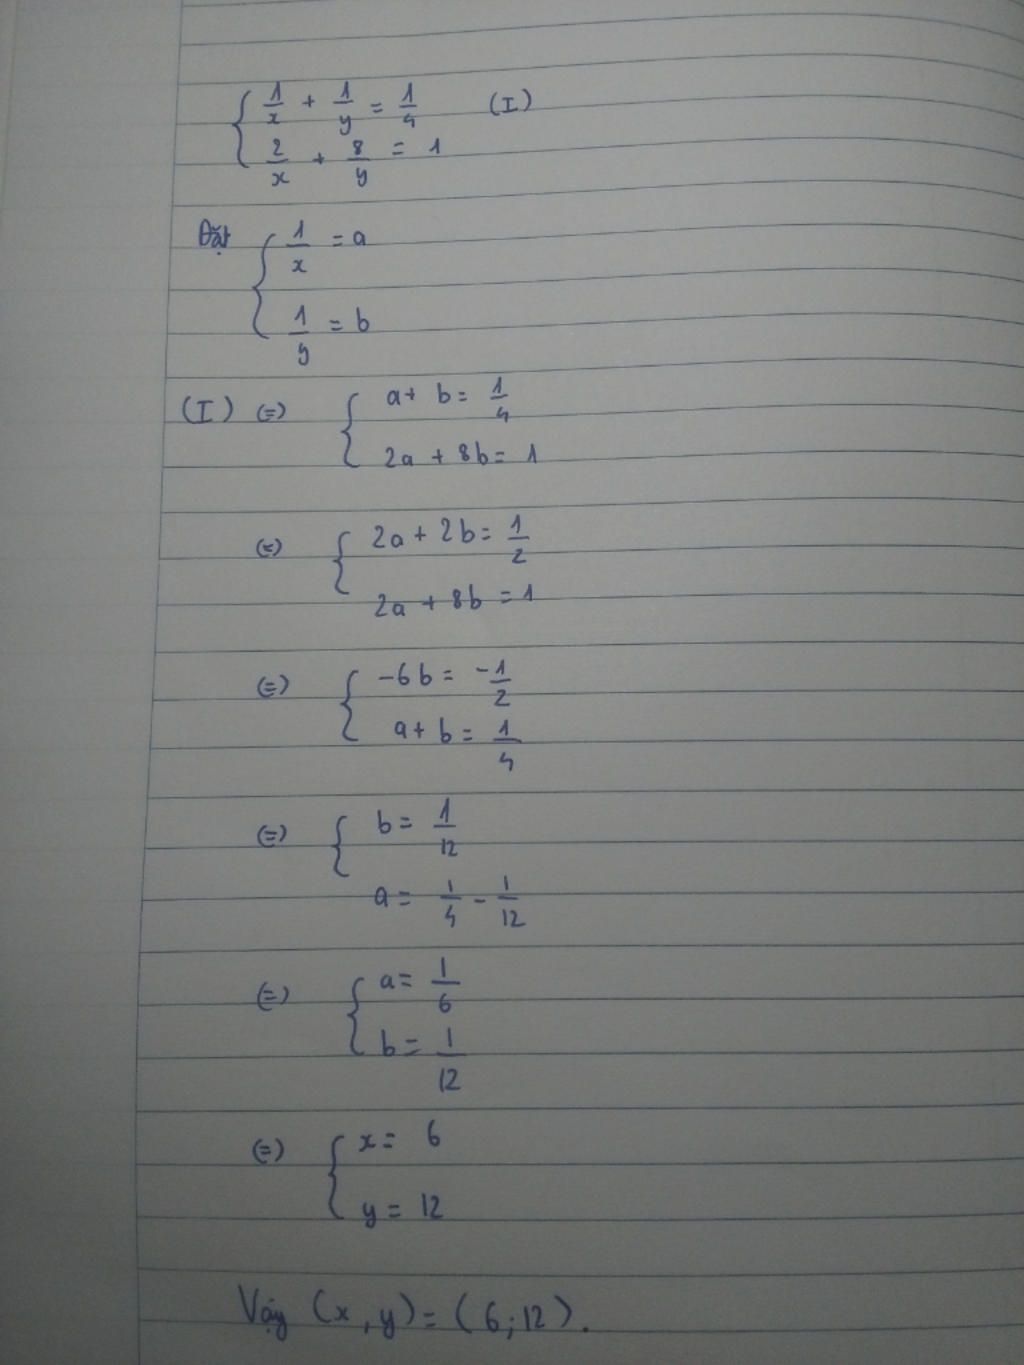 { 1/x + 1/y = 1/4 (I)
2/x + 8/y = 1
Đặt { 1/x = a
1/y = b
(I) (=) { a + b = 1/4
2a + 8b = 1
(=) { 2a + 2b = 1/2
2a + 8b = 1
(=) { -6b = -1/2
a + b = 1/4
(=) { b = 1/12
a = 1/4 - 1/12
(=) { a = 1/6
b = 1/12
(=) { x = 6
y = 12
Vậy (x, y) = (6; 12).